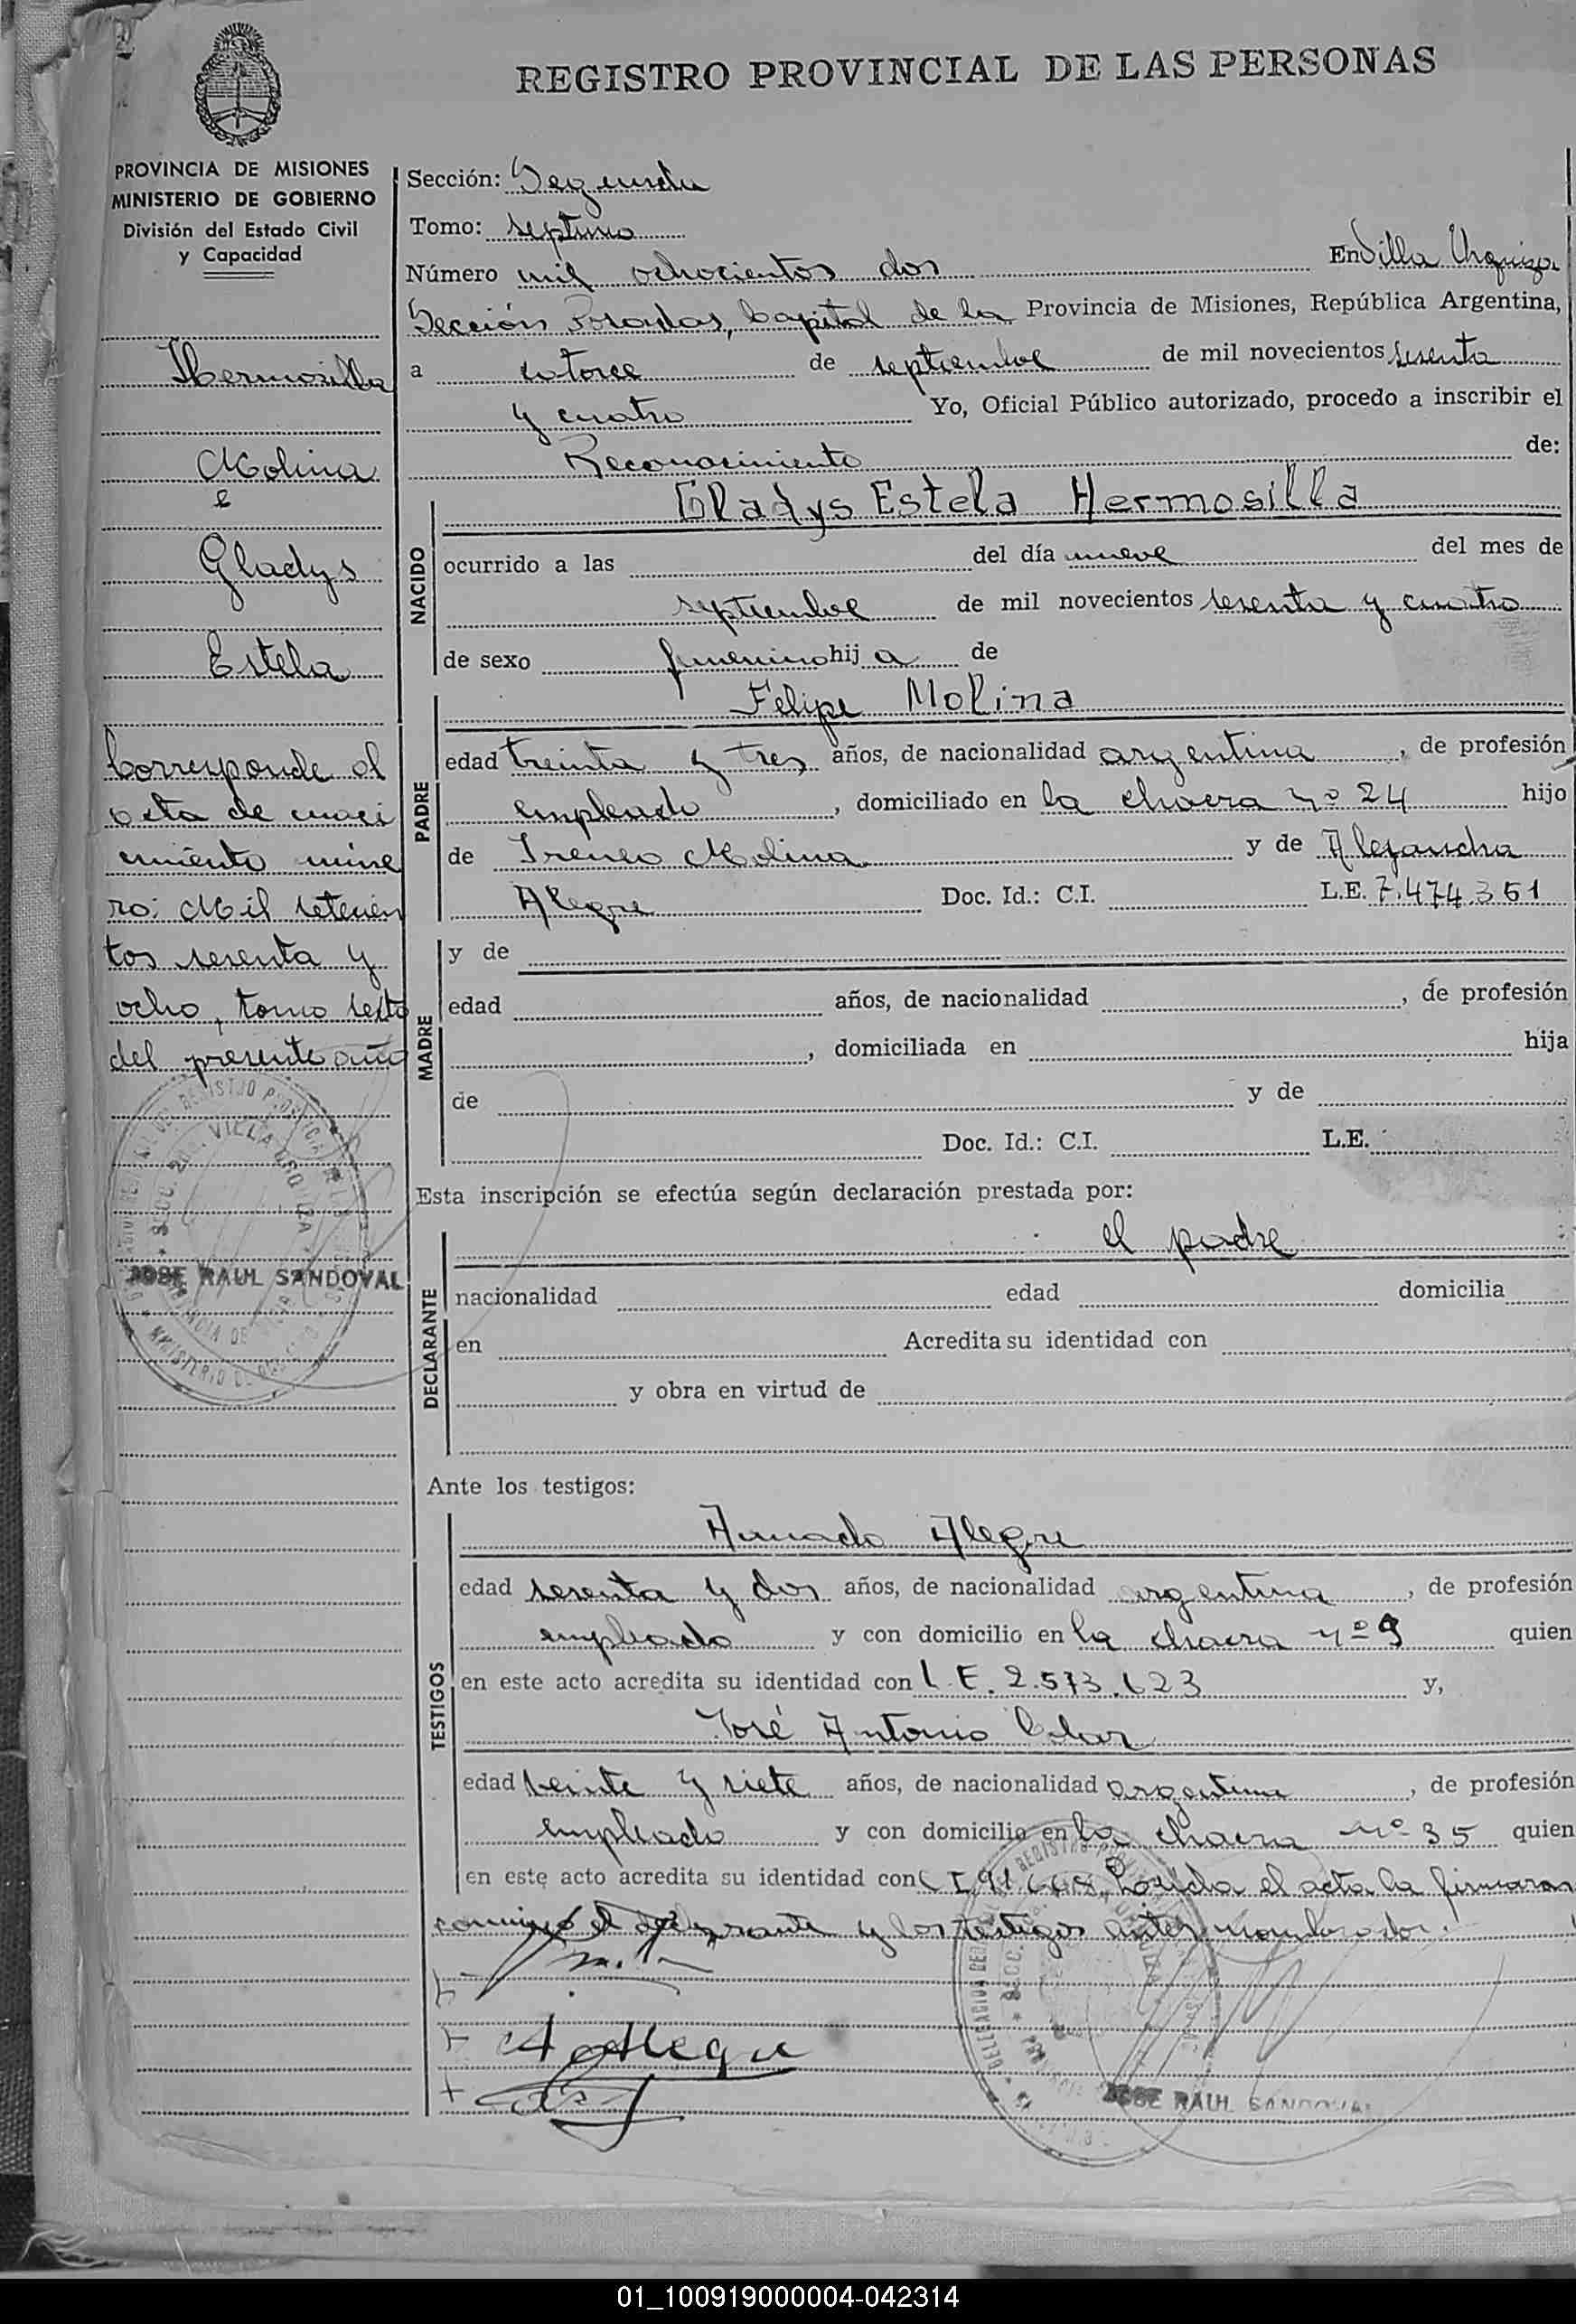 REGISTRO PROVINCIAL DE LAS PERSONAS
PROVINCIA DE MISIONES
MINISTERIO DE GOBIERNO
División del Estado Civil
y Capacidad
Hermosilla
Molina
e
Gladys
Estela
Corresponde al
acta de naci
miento núme
ro: Mil setecien
tos sesenta y
ocho, tomo sexto
del presente año
JOSE RAUL SANDOVAL
Sección: Segunda
Tomo: septimo
Número mil ochocientos dos En Villa Urquiza
Sección Posadas, Capital de la Provincia de Misiones, República Argentina,
a catorce de septiembre de mil novecientos sesenta
y cuatro Yo, Oficial Público autorizado, procedo a inscribir el
Reconocimiento de:
NACIDO
Gladys Estela Hermosilla
ocurrido a las del día nueve del mes de
septiembre de mil novecientos sesenta y cuatro
de sexo femenino hij a de
PADRE
Felipe Molina
edad treinta y tres años, de nacionalidad argentina, de profesión
empleado, domiciliado en la chacra nº 24 hijo
de Ireneo Molina y de Alejandra
Alegre Doc. Id.: C.I. L.E. 7.474.361
MADRE
y de
edad años, de nacionalidad , de profesión
, domiciliada en hija
de y de
Doc. Id.: C.I. L.E.
Esta inscripción se efectúa según declaración prestada por:
DECLARANTE
el padre
nacionalidad edad domicilia
en Acredita su identidad con
y obra en virtud de
Ante los testigos:
TESTIGOS
Amado Alegre
edad sesenta y dos años, de nacionalidad argentina, de profesión
empleado y con domicilio en la chacra nº 9 quien
en este acto acredita su identidad con L.E. 2.573.623 y,
José Antonio
edad veinte y siete años, de nacionalidad argentina, de profesión
empleado y con domicilio en la chacra nº 35 quien
en este acto acredita su identidad con Leída el acta la firmaron
conmigo el declarante y los testigos antes nombrados.
A Alegre
JOSE RAUL SANDOVAL
01_100919000004-042314